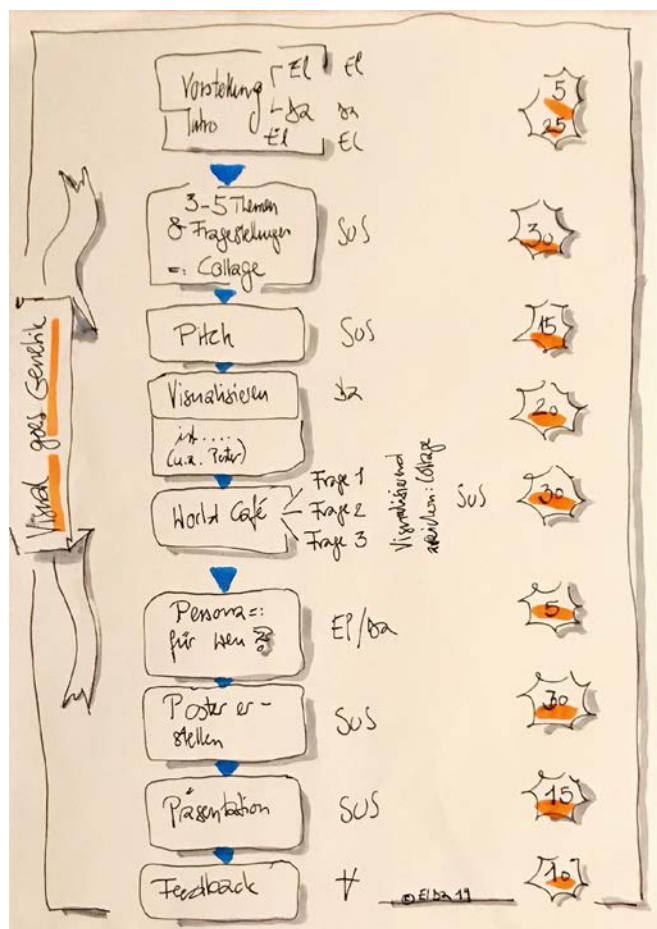 Visual goes Genetik
Vorstellung El El
Intro Da Da
El El
5
25
3-5 Themen
& Fragestellungen
=: Collage
SuS
30
Pitch
SuS
15
Visualisieren
Da
ist.....
(u.a. Poster)
20
World Café
Frage 1
Frage 2
Frage 3
Visualisierend
: Collage
SuS
30
Persona =:
für wen ?
El/Da
5
Poster er-
stellen
SuS
30
Präsentation
SuS
15
Feedback
∀
10
© ElDa 19